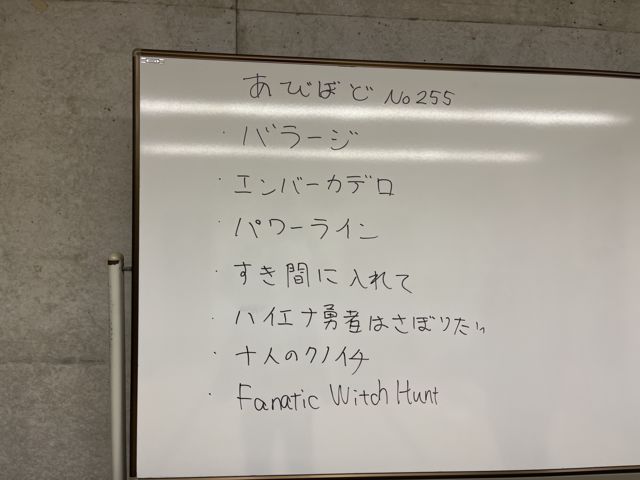 あびぼど No255
・バラージ
・エンバーカデロ
・パワーライン
・すき間に入れて
・ハイエナ勇者はさぼりたい
・十人のクノイチ
・Fanatic Witch Hunt